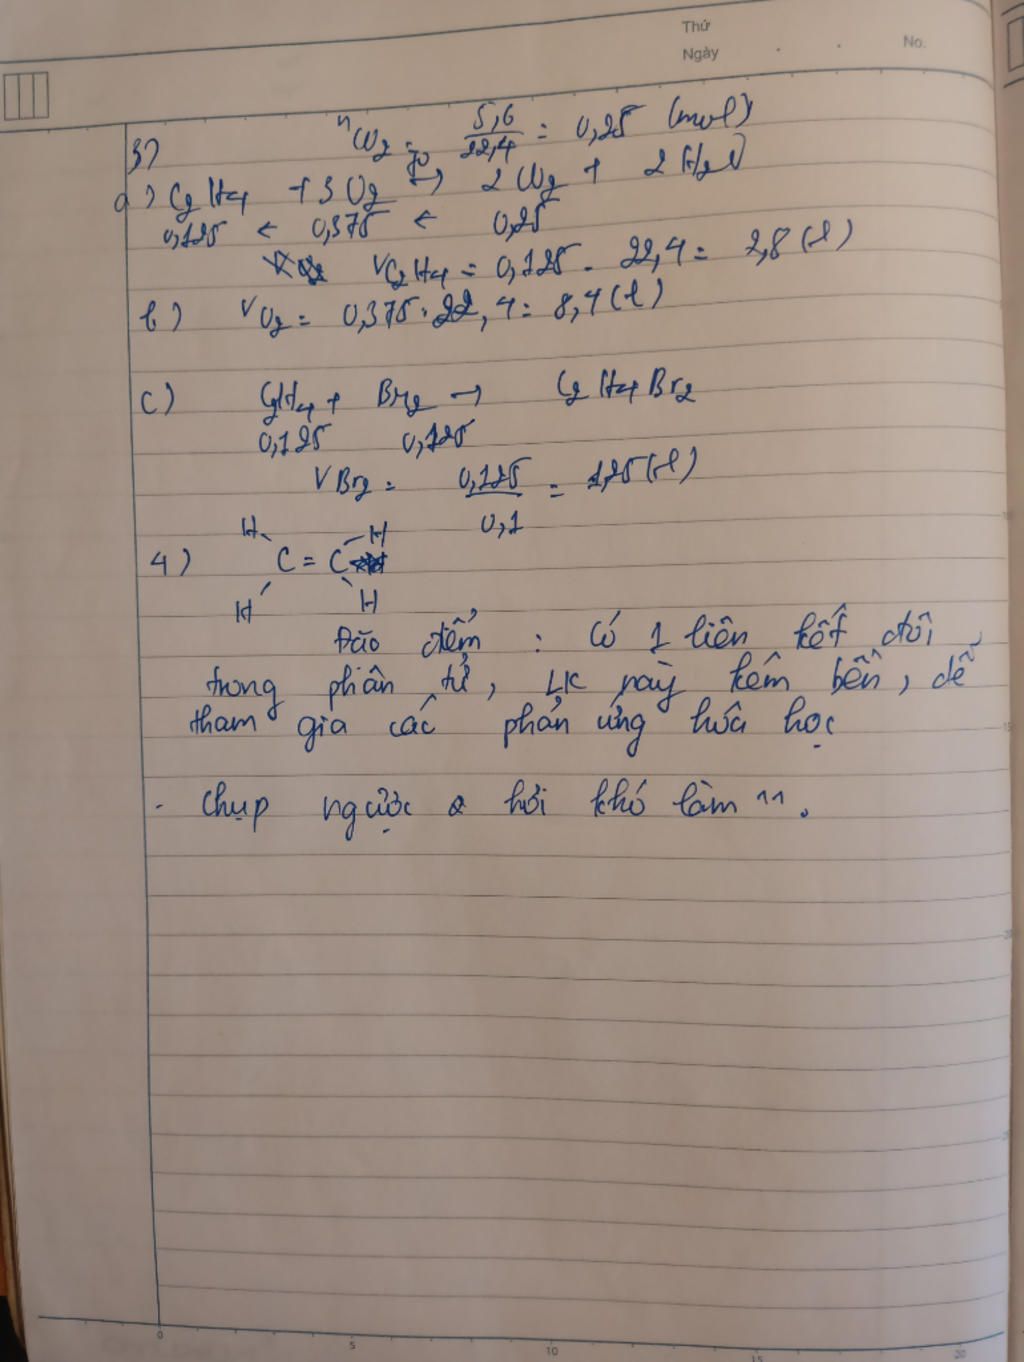 Thứ
Ngày . . No.
3) nCO2 = 5,6/22,4 = 0,25 (mol)
a) C2H4 + 3O2 t°→ 2CO2 + 2H2O
0,125 ← 0,375 ← 0,25
VC2H4 = 0,125 . 22,4 = 2,8 (l)
b) VO2 = 0,375 . 22,4 = 8,4 (l)
c) C2H4 + Br2 → C2H4Br2
0,125 0,125
VBr2 = 0,125/0,1 = 1,25 (l)
H H
4) C = C
H H
Đăc điểm : Có 1 liên kết đôi
trong phân tử, LK này kém bền, dễ
tham gia các phản ứng hóa học
- Chụp ngược hơi khó làm ^^.
0 5 10 15 20